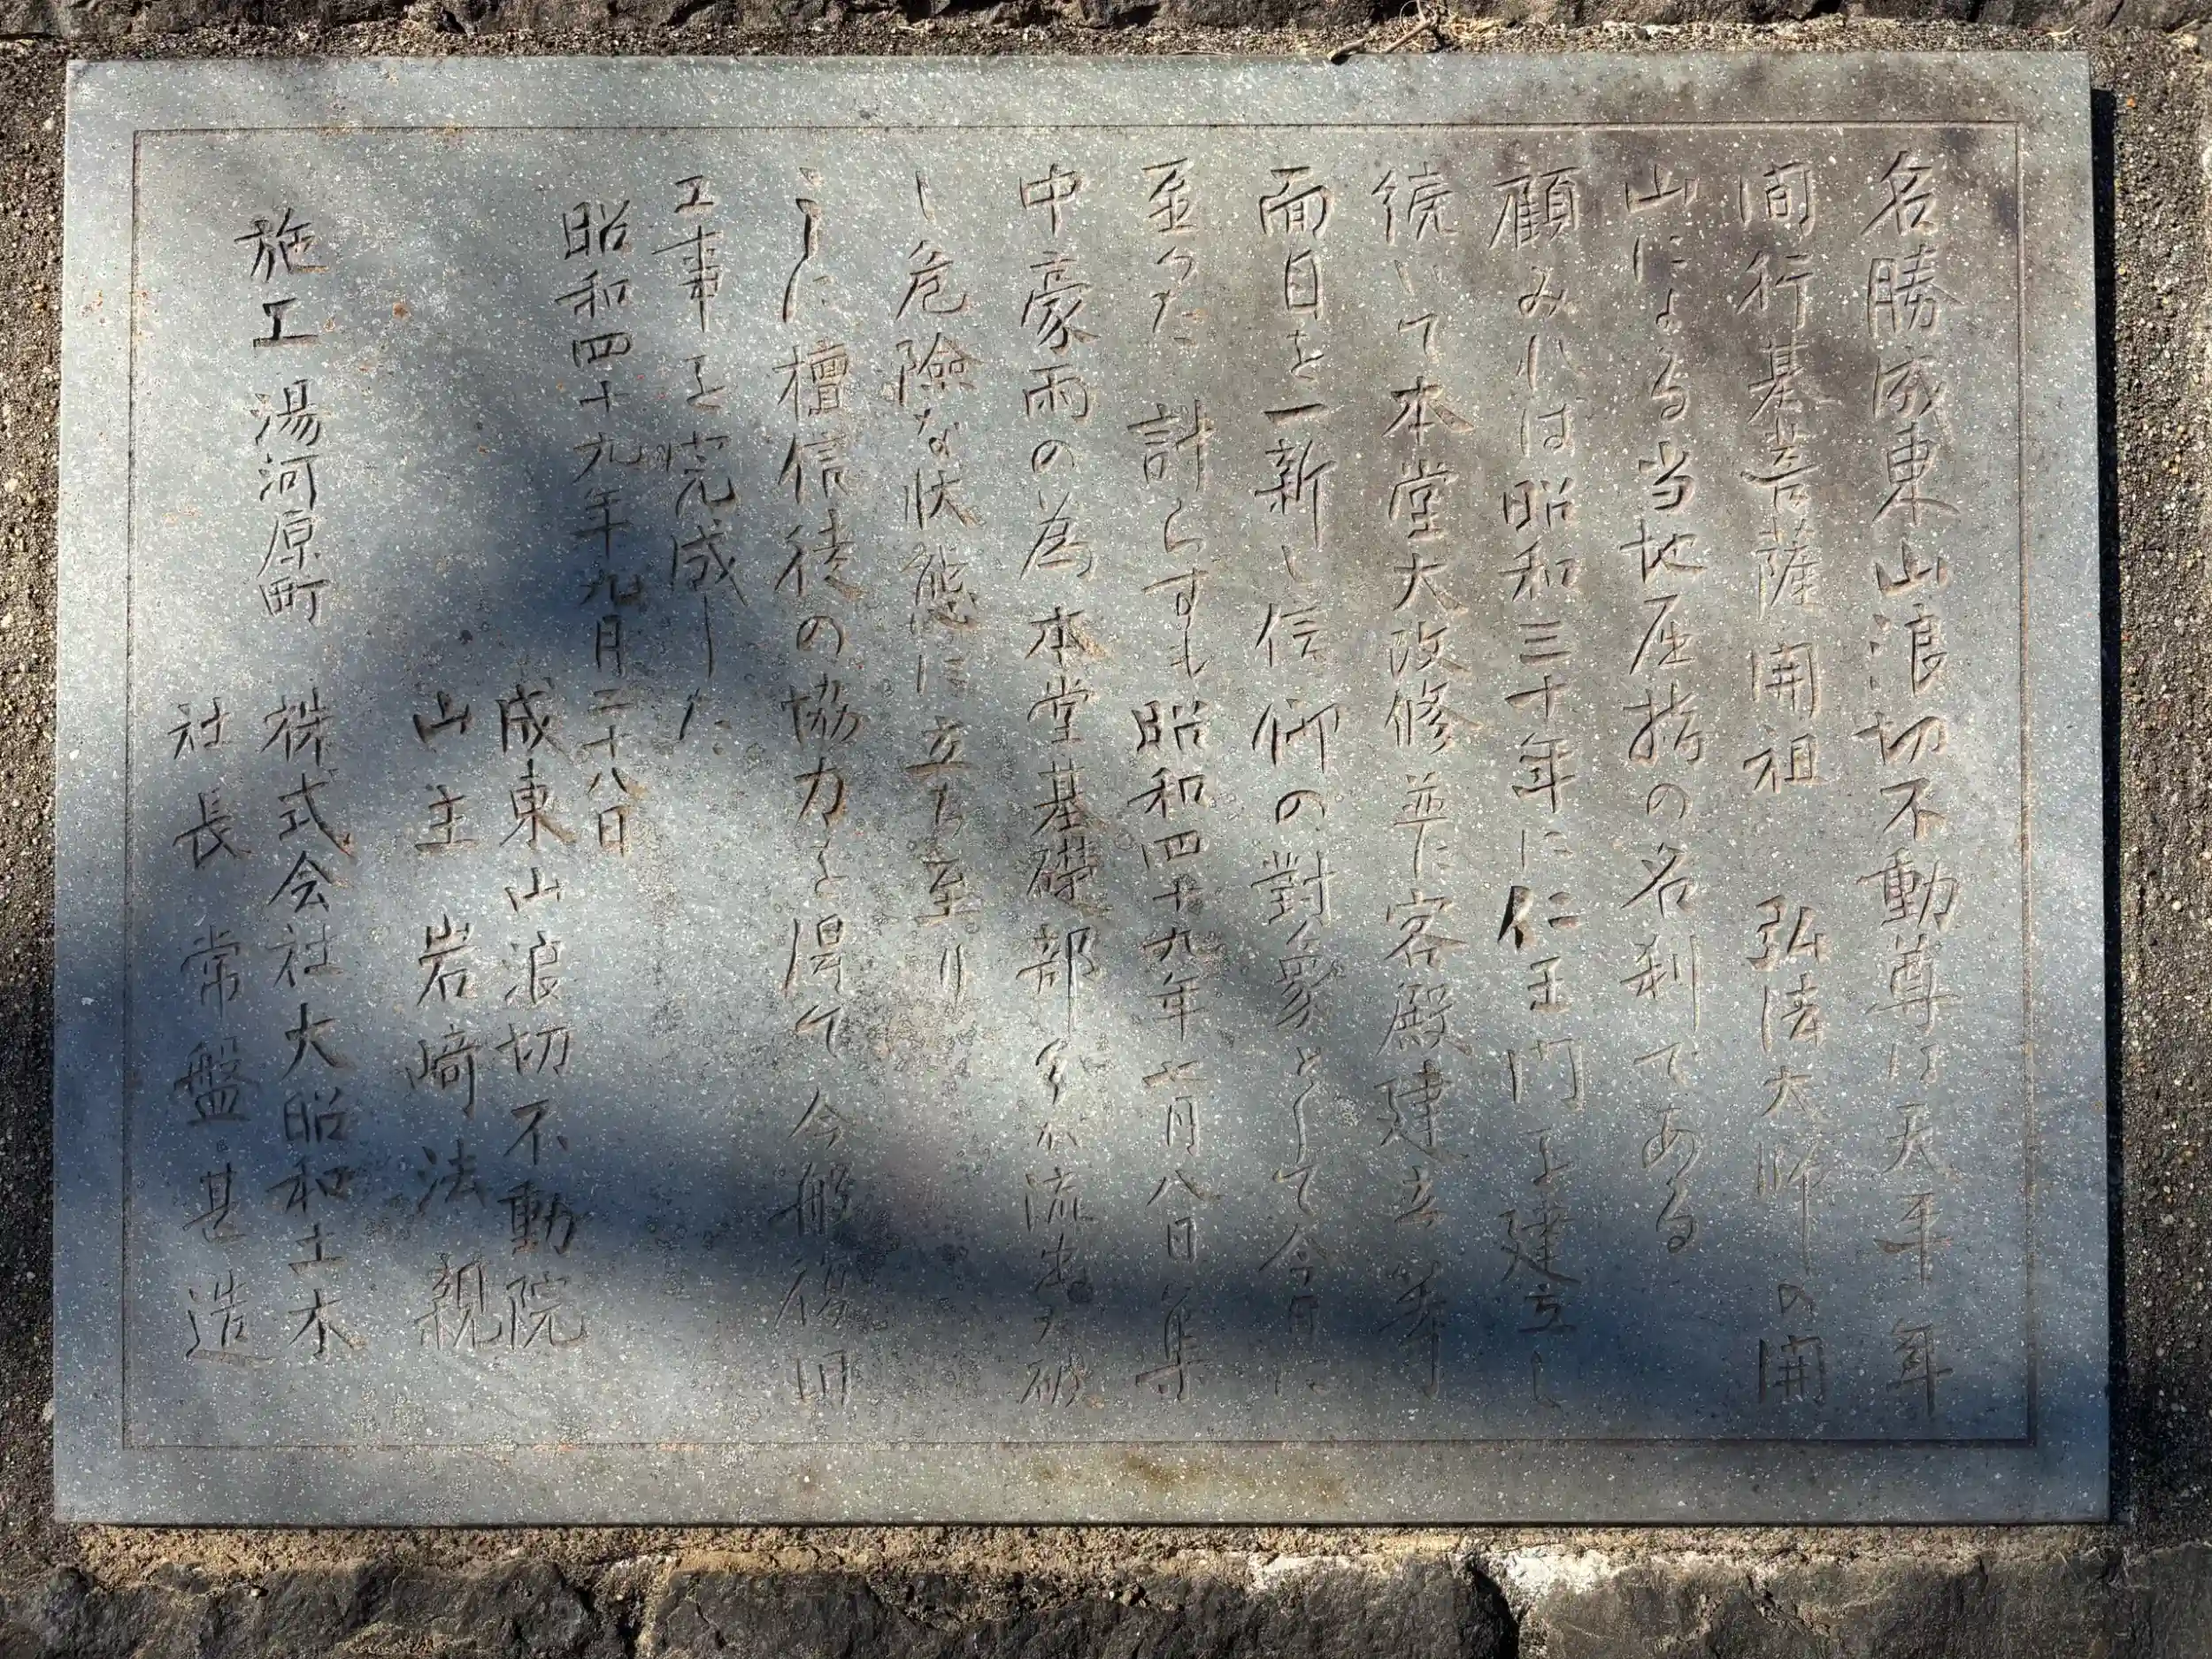 名勝成東山浪切不動尊は天平年
間行基菩薩開祖　弘法大師の開
山による当地屈指の名刹である
顧みれば昭和三十年に仁王門を建立し
続いて本堂大改修並に客殿建立等
面目を一新し信仰の對象として今日に
至つた　計らずも昭和四十九年七月八日集
中豪雨の為本堂基礎部分が流出大破
し危険な状態に立ち至り
ここに檀信徒の協力を得て今般復旧
工事を完成した
昭和四十九年九月二十八日
成東山浪切不動院
山主　岩崎法親
施工　湯河原町　株式会社大昭和土木
社長　常盤甚造